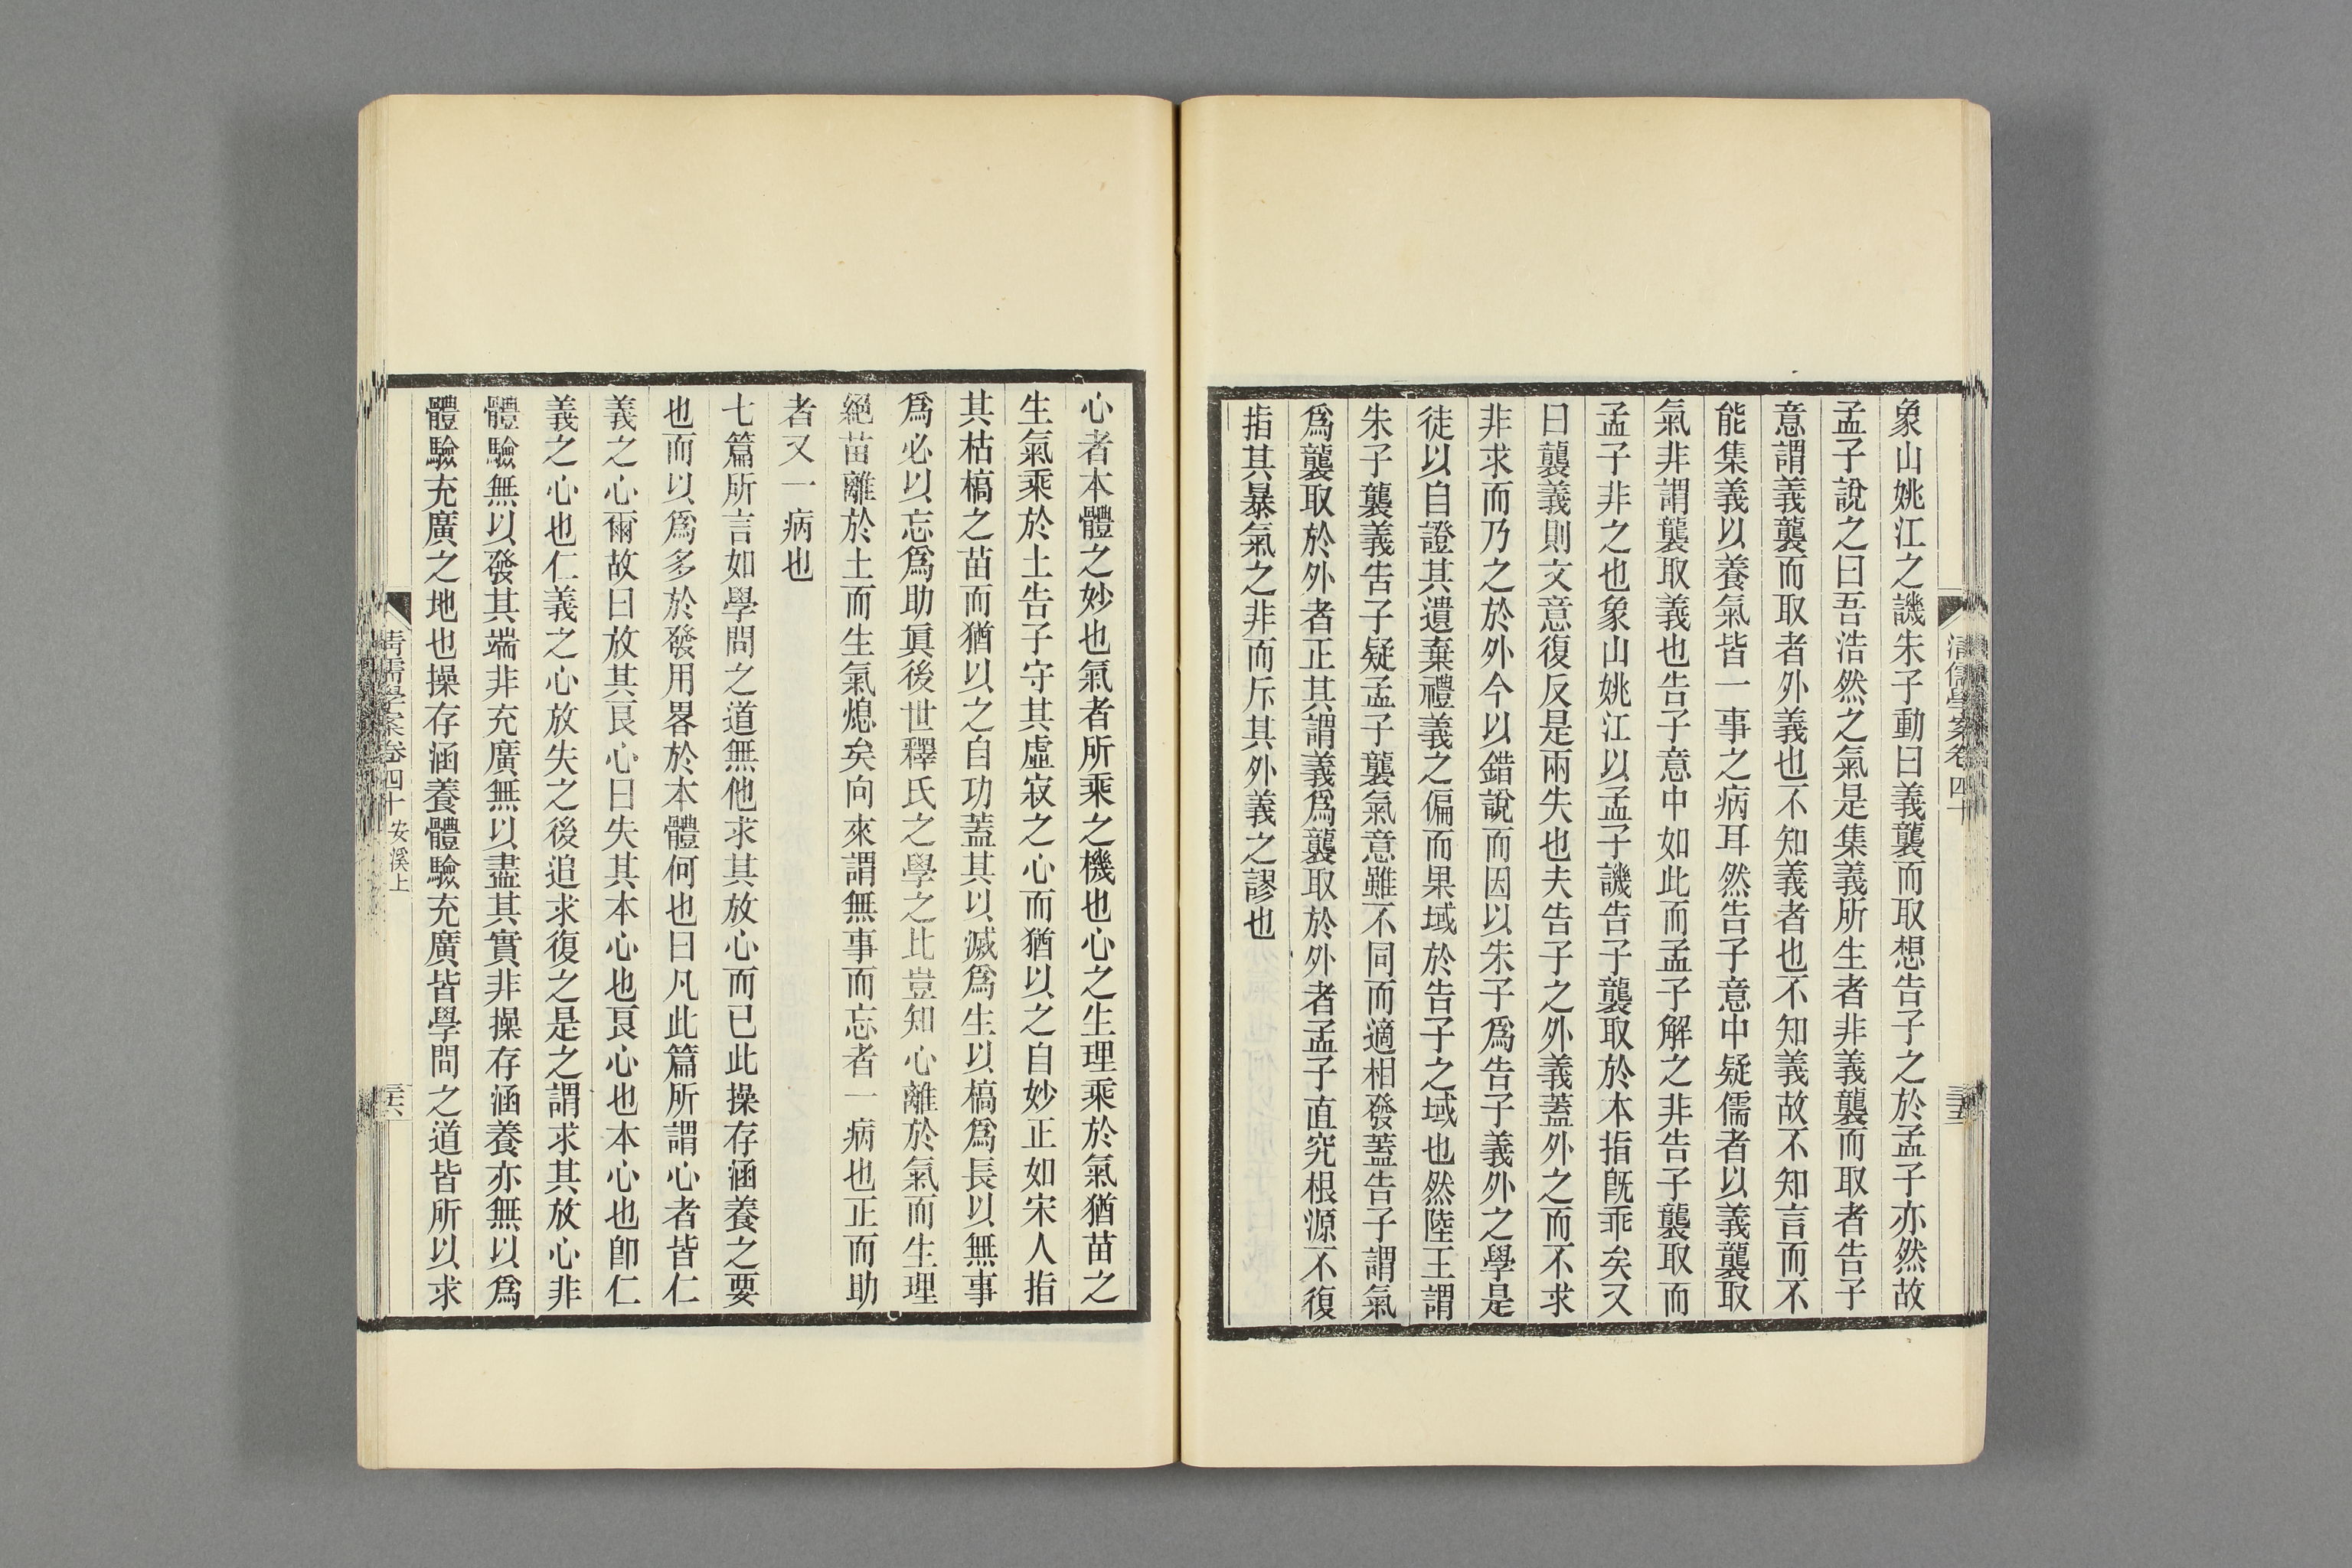 清儒學案卷四十
三十五
象山姚江之譏朱子動曰義襲而取想告子之於孟子亦然故
孟子說之曰吾浩然之氣是集義所生者非義襲而取者告子
意謂義襲而取者外義也不知義者也不知義故不知言而不
能集義以養氣皆一事之病耳然告子意中疑儒者以義襲取
氣非謂襲取義也告子意中如此而孟子解之非告子襲取而
孟子非之也象山姚江以孟子譏告子襲取於本指旣乖矣又
曰襲義則文意復反是兩失也夫告子之外義蓋外之而不求
非求而乃之於外今以錯說而因以朱子爲告子義外之學是
徒以自證其遺棄禮義之偏而果域於告子之域也然陸王謂
朱子襲義告子疑孟子襲氣意雖不同而適相發蓋告子謂氣
爲襲取於外者正其謂義爲襲取於外者孟子直究根源不復
指其暴氣之非而斥其外義之謬也
心者本體之妙也氣者所乘之機也心之生理乘於氣猶苗之
生氣乘於土告子守其虛寂之心而猶以之自妙正如宋人指
其枯槁之苗而猶以之自功蓋其以滅爲生以槁爲長以無事
爲必以忘爲助眞後世釋氏之學之比豈知心離於氣而生理
絕苗離於土而生氣熄矣向來謂無事而忘者一病也正而助
者又一病也
七篇所言如學問之道無他求其放心而已此操存涵養之要
也而以爲多於發用畧於本體何也曰凡此篇所謂心者皆仁
義之心爾故曰放其良心曰失其本心也良心也本心也卽仁
義之心也仁義之心放失之後追求復之是之謂求其放心非
體驗無以發其端非充廣無以盡其實非操存涵養亦無以爲
體驗充廣之地也操存涵養體驗充廣皆學問之道皆所以求
清儒學案卷四十 安溪上
三十六